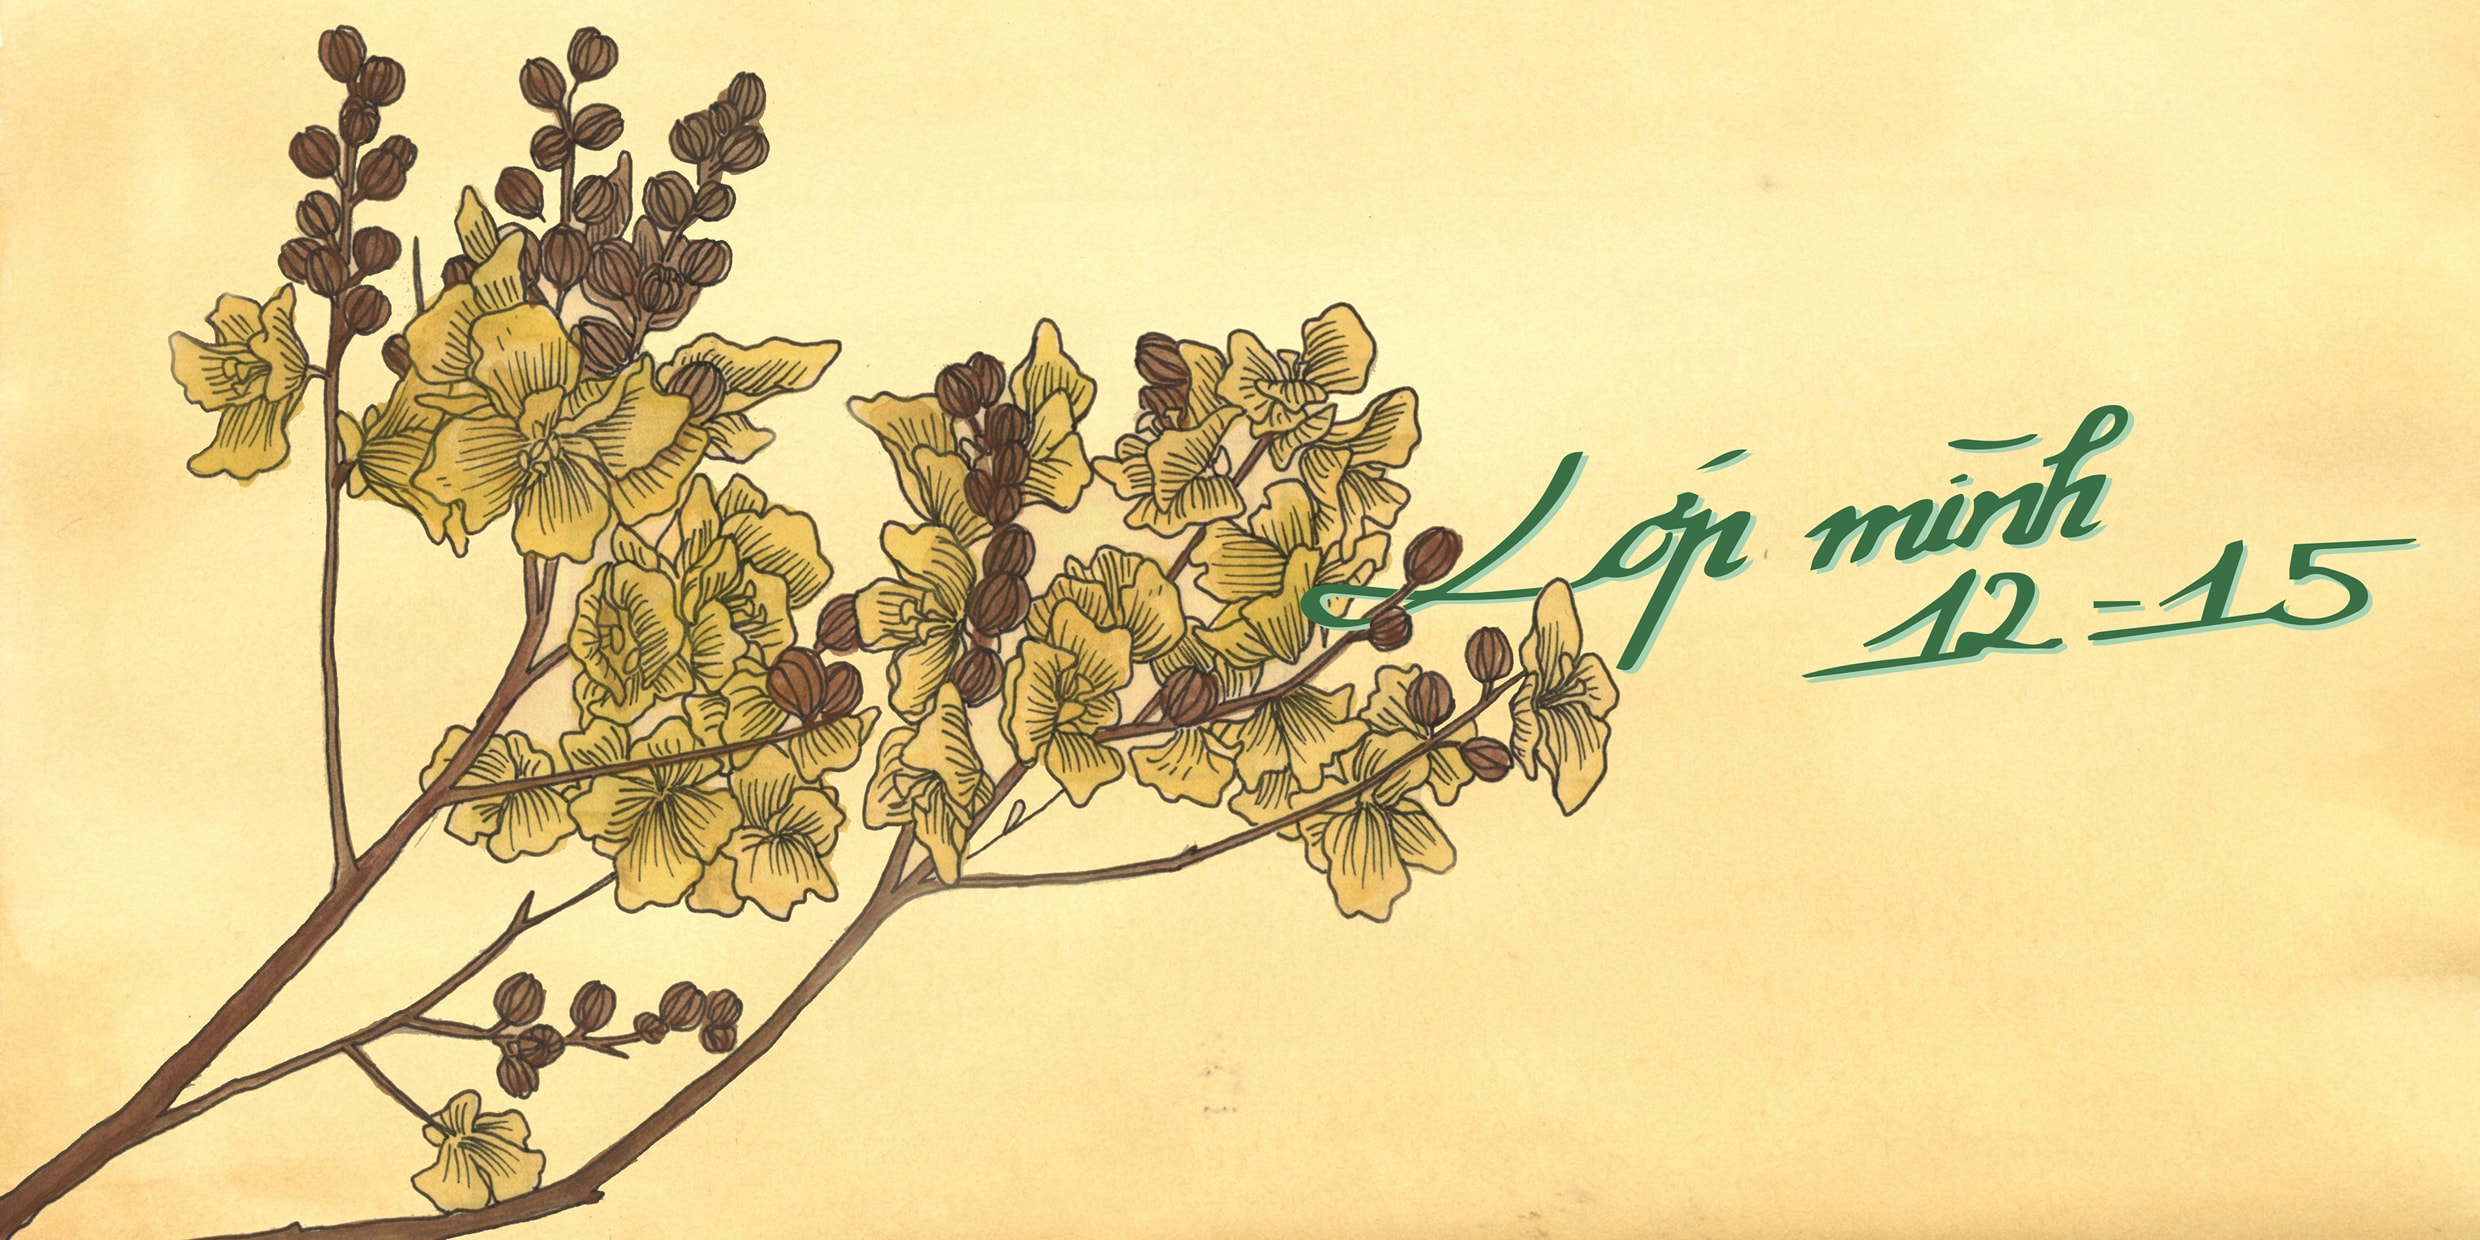 Lớp mình
12-15